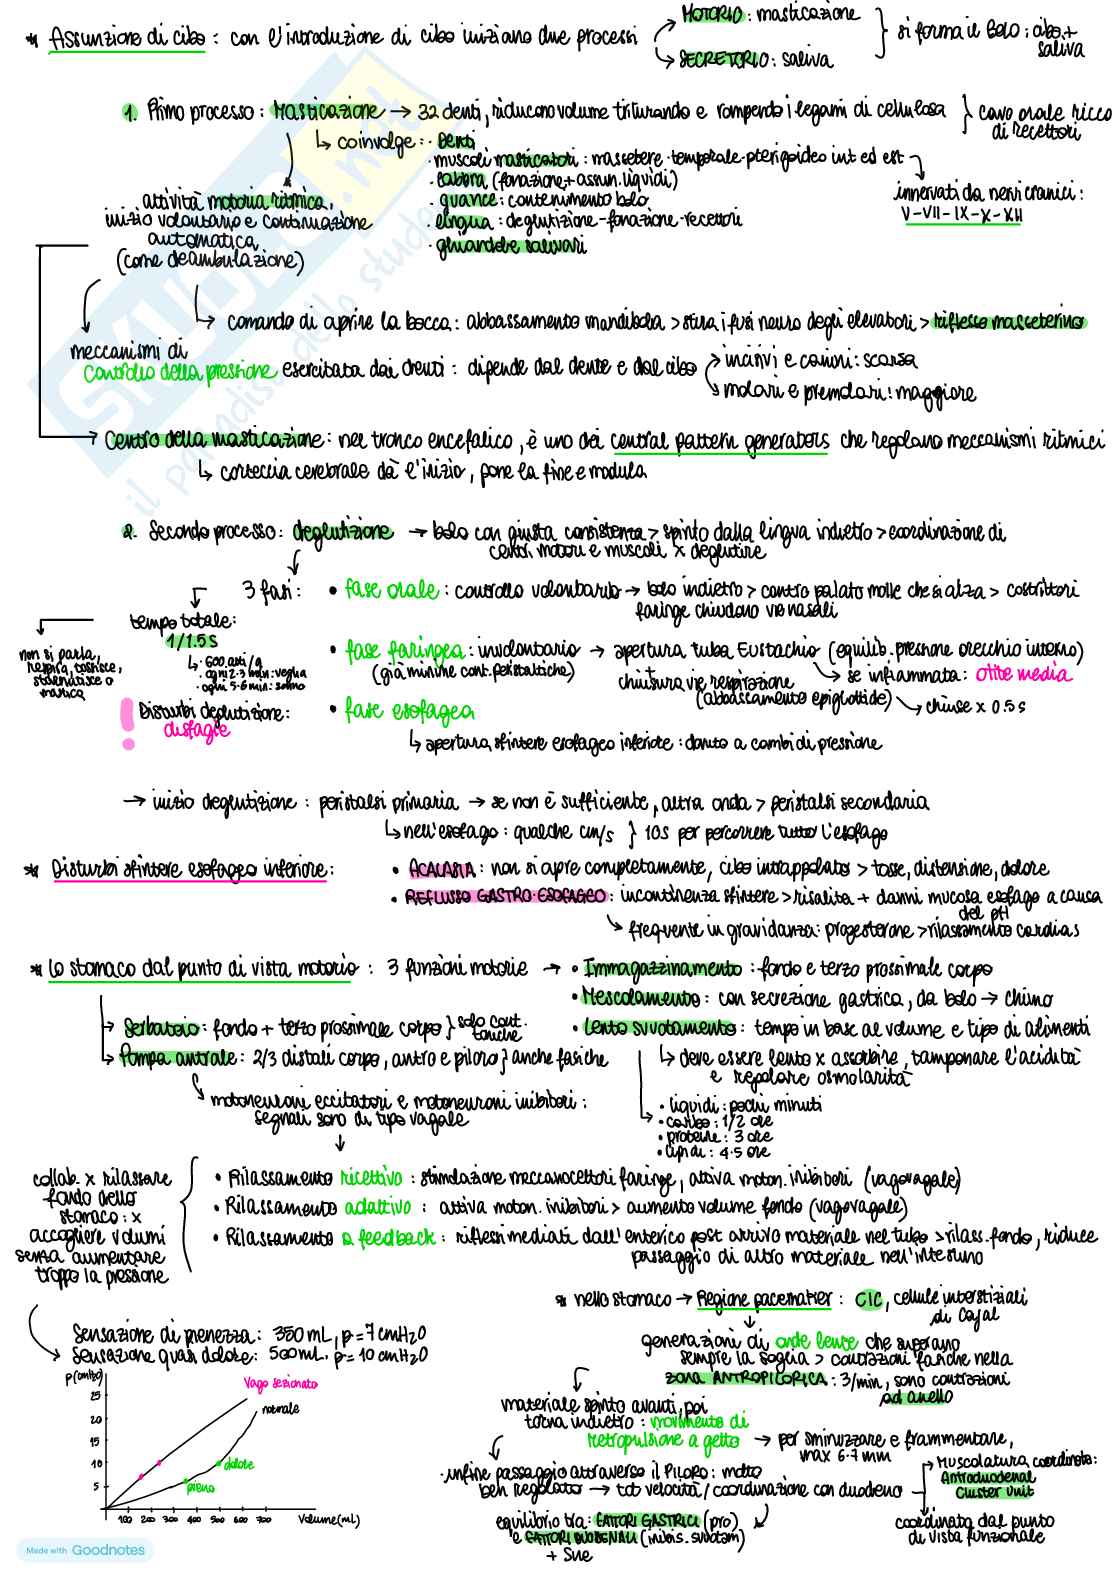 * Assunzione di cibo : con l'introduzione di cibo iniziano due processi
MOTORIO : masticazione
SECRETORIO : saliva
si forma il bolo : cibo + saliva
1. Primo processo : Masticazione → 32 denti, riducono volume triturando e rompendo i legami di cellulosa
cavo orale ricco
di recettori
↳ coinvolge : · Denti
· muscoli masticatori : massetere · temporale · pterigoideo int ed est
· labbra (fonazione + assun. liquidi)
· guance : contenimento bolo
· lingua : deglutizione - fonazione - recettori
· ghiandole salivari
innervati da nervi cranici :
V - VII - IX - X - XII
attività motoria ritmica,
inizio volontario e continuazione
automatica
(come deambulazione)
↳ comando di aprire la bocca : abbassamento mandibola > stira i fusi neuro degli elevatori > riflesso masseterino
meccanismi di
controllo della pressione esercitata dai denti : dipende dal dente e dal cibo
incisivi e canini : scarsa
molari e premolari : maggiore
Centro della masticazione : nel tronco encefalico, è uno dei central pattern generators che regolano meccanismi ritmici
↳ corteccia cerebrale dà l'inizio, pone la fine e modula
2. Secondo processo : deglutizione → bolo con giusta consistenza > spinto dalla lingua indietro > coordinazione di
centri motori e muscoli x deglutire
3 fasi :
• fase orale : controllo volontario → bolo indietro > contro palato molle che si alza > costrittori
faringe chiudono vie nasali
tempo totale :
1/1.5 s
↳ · 600 atti / g
· ogni 2-3 min : veglia
· ogni 5-6 min : sonno
non si parla,
respira, tossisce,
starnutisce o
mastica
• fase faringea : involontario → apertura tuba Eustachio (equilib. pressione orecchio interno)
(già minime cont. peristaltiche)
↳ se infiammata : otite media
chiusura vie respirazione
(abbassamento epiglottide) → chiuse x 0.5 s
! Disturbi deglutizione :
disfagie
• fase esofagea
↳ apertura sfintere esofageo inferiore : dovuto a cambi di pressione
→ inizio deglutizione : peristalsi primaria → se non è sufficiente, altra onda > peristalsi secondaria
↳ nell'esofago : qualche cm/s } 10 s per percorrere tutto l'esofago
* Disturbi sfintere esofageo inferiore :
• ACALASIA : non si apre completamente, cibo intrappolato > tosse, distensione, dolore
• REFLUSSO GASTRO-ESOFAGEO : incontinenza sfintere > risalita + danni mucosa esofago a causa
del pH
↳ frequente in gravidanza : progesterone > rilassamento cardias
* Lo stomaco dal punto di vista motorio : 3 funzioni motorie →
• Immagazzinamento : fondo e terzo prossimale corpo
• Mescolamento : con secrezione gastrica, da bolo → chimo
• Lento svuotamento : tempo in base al volume e tipo di alimenti
↳ deve essere lento x assorbire, tamponare l'acidità
e regolare osmolarità
→ Serbatoio : fondo + terzo prossimale corpo } solo cont.
toniche
→ Pompa antrale : 2/3 distali corpo, antro e piloro } anche fasiche
• liquidi : pochi minuti
• carbo : 1/2 ore
• proteine : 3 ore
• lipidi : 4-5 ore
↳ motoneuroni eccitatori e motoneuroni inibitori :
segnali sono di tipo vagale
collab. x rilassare
fondo dello
stomaco : x
accogliere volumi
senza aumentare
troppo la pressione
• Rilassamento ricettivo : stimolazione meccanocettori faringe, attiva moton. inibitori (vagovagale)
• Rilassamento adattivo : attiva moton. inibitori > aumento volume fondo (vagovagale)
• Rilassamento a feedback : riflessi mediati dall'enterico post arrivo materiale nel tubo > rilass. fondo, riduce
passaggio di altro materiale nell'intestino
Sensazione di pienezza : 350 mL, p = 7 cmH2O
Sensazione quasi dolore : 500 mL, p = 10 cmH2O
p(cmH2O)
25
20
15
10
5
Vago sezionato
normale
dolore
pieno
100 200 300 400 500 600 700
Volume (mL)
* nello stomaco → Regione pacemaker : CIC, cellule interstiziali
di Cajal
generazioni di onde lente che superano
sempre la soglia > contrazioni fasiche nella
zona ANTROPILORICA : 3/min, sono contrazioni
ad anello
materiale spinto avanti, poi
torna indietro : movimento di
retropulsione a getto → per sminuzzare e frammentare,
max 6-7 mm
· infine passaggio attraverso il PILORO : molto
ben regolato → tot velocità / coordinazione con duodeno
→ Muscolatura coordinata :
Antroduodenal
Cluster unit
coordinata dal punto
di vista funzionale
equilibrio tra : FATTORI GASTRICI (pro)
e FATTORI DUODENALI (inibis. svuotam)
+ SNE
SKUOLA.net
il paradiso dello studente
Made with Goodnotes